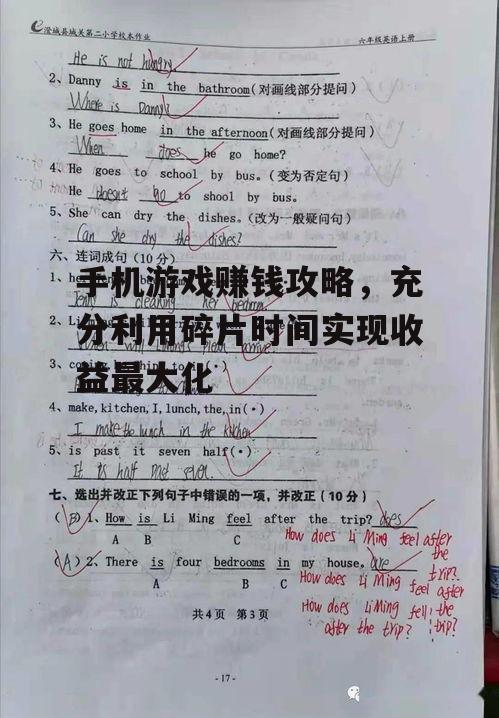 澄城县城关第二小学校本作业 六年级英语上册
He is not hungry
2、Danny is in the bathroom(对画线部分提问)
Where is Danny?
3、He goes home in the afternoon(对画线部分提问)
When does he go home?
4、He goes to school by bus.(变为否定句)
He doesn't go to shool by bus.
5、She can dry the dishes.(改为一般疑问句)
Can she dry the dishes?
六、连词成句(10分)
手机游戏赚钱攻略，充
分利用碎片时间实现收
益最大化
is cleaning her bedroom
4、make,kitchen,I,lunch,the,in(·)
I make the lunch in the kitchen
5、is past it seven half(·)
It is half past seven.
七、选出并改正下列句子中错误的一项，并改正(10分)
(B)1、How is Li Ming feel after the trip? does
A B C
How does Li Ming feel after
the
trip?
(A)2、There is four bedrooms in my house. are
A B C
How does Li Ming feel after
How does Li Ming fell the
after the trip? trip?
共4页 第3页
-17-